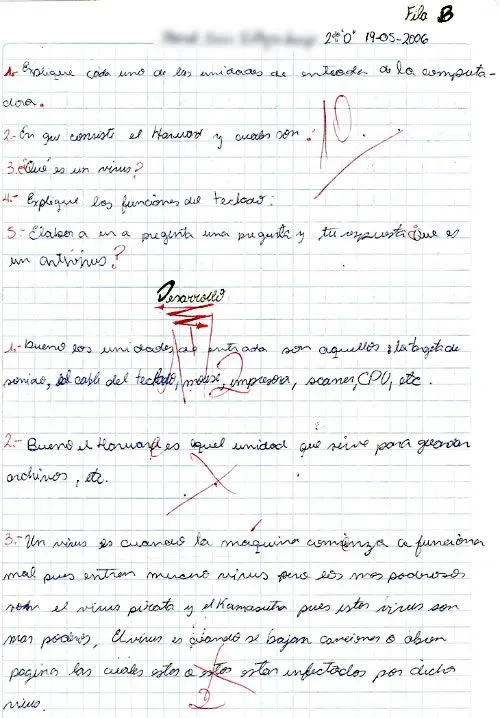 Fila B
2º "O" 19-05-2006
1.- Explique cada uno de las unidades de entrada de la computa-
dora.
2.- En que consiste el Harward y cuales son.
10
3.- ¿Qué es un virus?
4.- Explique las funciones del teclado:
5.- Elabora una pregunta y tu respuesta ¿Que es
un antivirus?
Desarrollo
1.- Bueno los unidades de entrada son aquellos, la targeta de
sonido, el cable del teclado, mouse, impresora, scaner, CPU, etc.
2
2.- Bueno el Harward es aquel unidad que sirve para guardar
archivos, etc.
3.- Un virus es cuando la maquina comienza a funcionar
mal pues entran mucho virus pero los mas poderosos
son el virus pirata y el Kamasutra pues estos virus son
mas poderos, El virus es cuando se bajan canciones o abren
pagina las cuales estas o estos estan infectados por dicho
virus.
2